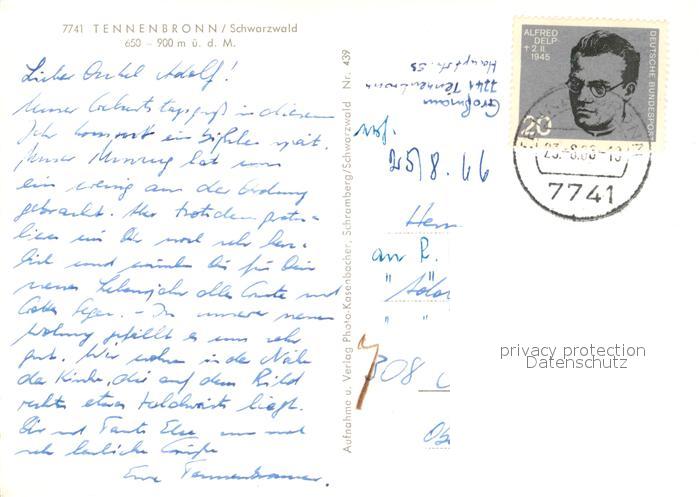 7741 TENNENBRONN / Schwarzwald
650 – 900 m ü. d. M.
Lieber Onkel Adolf!
Unser Geburtstagsgruß in diesem
Jahr kommt ein bißchen spät.
Unser Umzug hat uns
ein wenig aus der Ordnung
gebracht. Aber trotzdem gratu-
lieren wir Dir noch sehr herz-
lich und wünschen Dir für Dein
neues Lebensjahr alles Gute und
Gottes Segen. – In unserer neuen
Wohnung gefällt es uns sehr
gut. Wir wohnen in der Nähe
der Kirche, die auf dem Bild
rechts etwas waldwärts liegt.
Dir und Tante Else
sehr herzliche Grüße
Eure Tennenbronner.
Aufnahme u. Verlag Photo-Kasenbacher, Schramberg/Schwarzwald Nr. 439
Großmann
7741 Tennenbronn
Hauptstr. 55
ALFRED
DELP
† 2. II.
1945
DEUTSCHE BUNDESPOST
20
7741
Herr
an R.
" "
308
privacy protection
Datenschutz